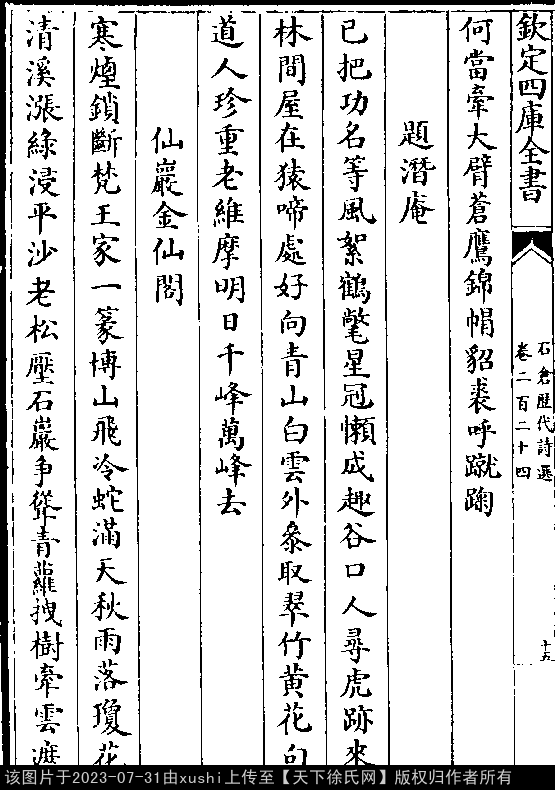 欽定四庫全書
石倉歴代詩選
卷二百二十四
十五
何當牽大臂蒼鷹錦帽貂裘呼蹴踘
題潛庵
已把功名等風絮鶴氅星冠懶成趣谷口人尋虎跡來
林間屋在猿啼處好向青山白雲外叅取翠竹黄花句
道人珍重老維摩明日千峰萬峰去
仙巖金仙閣
寒煙鎖斷梵王家一篆博山飛冷蛇滿天秋雨落瓊花
清溪漲綠浸平沙老松壓石巖争聳青蘿拽樹牽雲遮
该图片于2023-07-31由xushi上传至【天下徐氏网】版权归作者所有